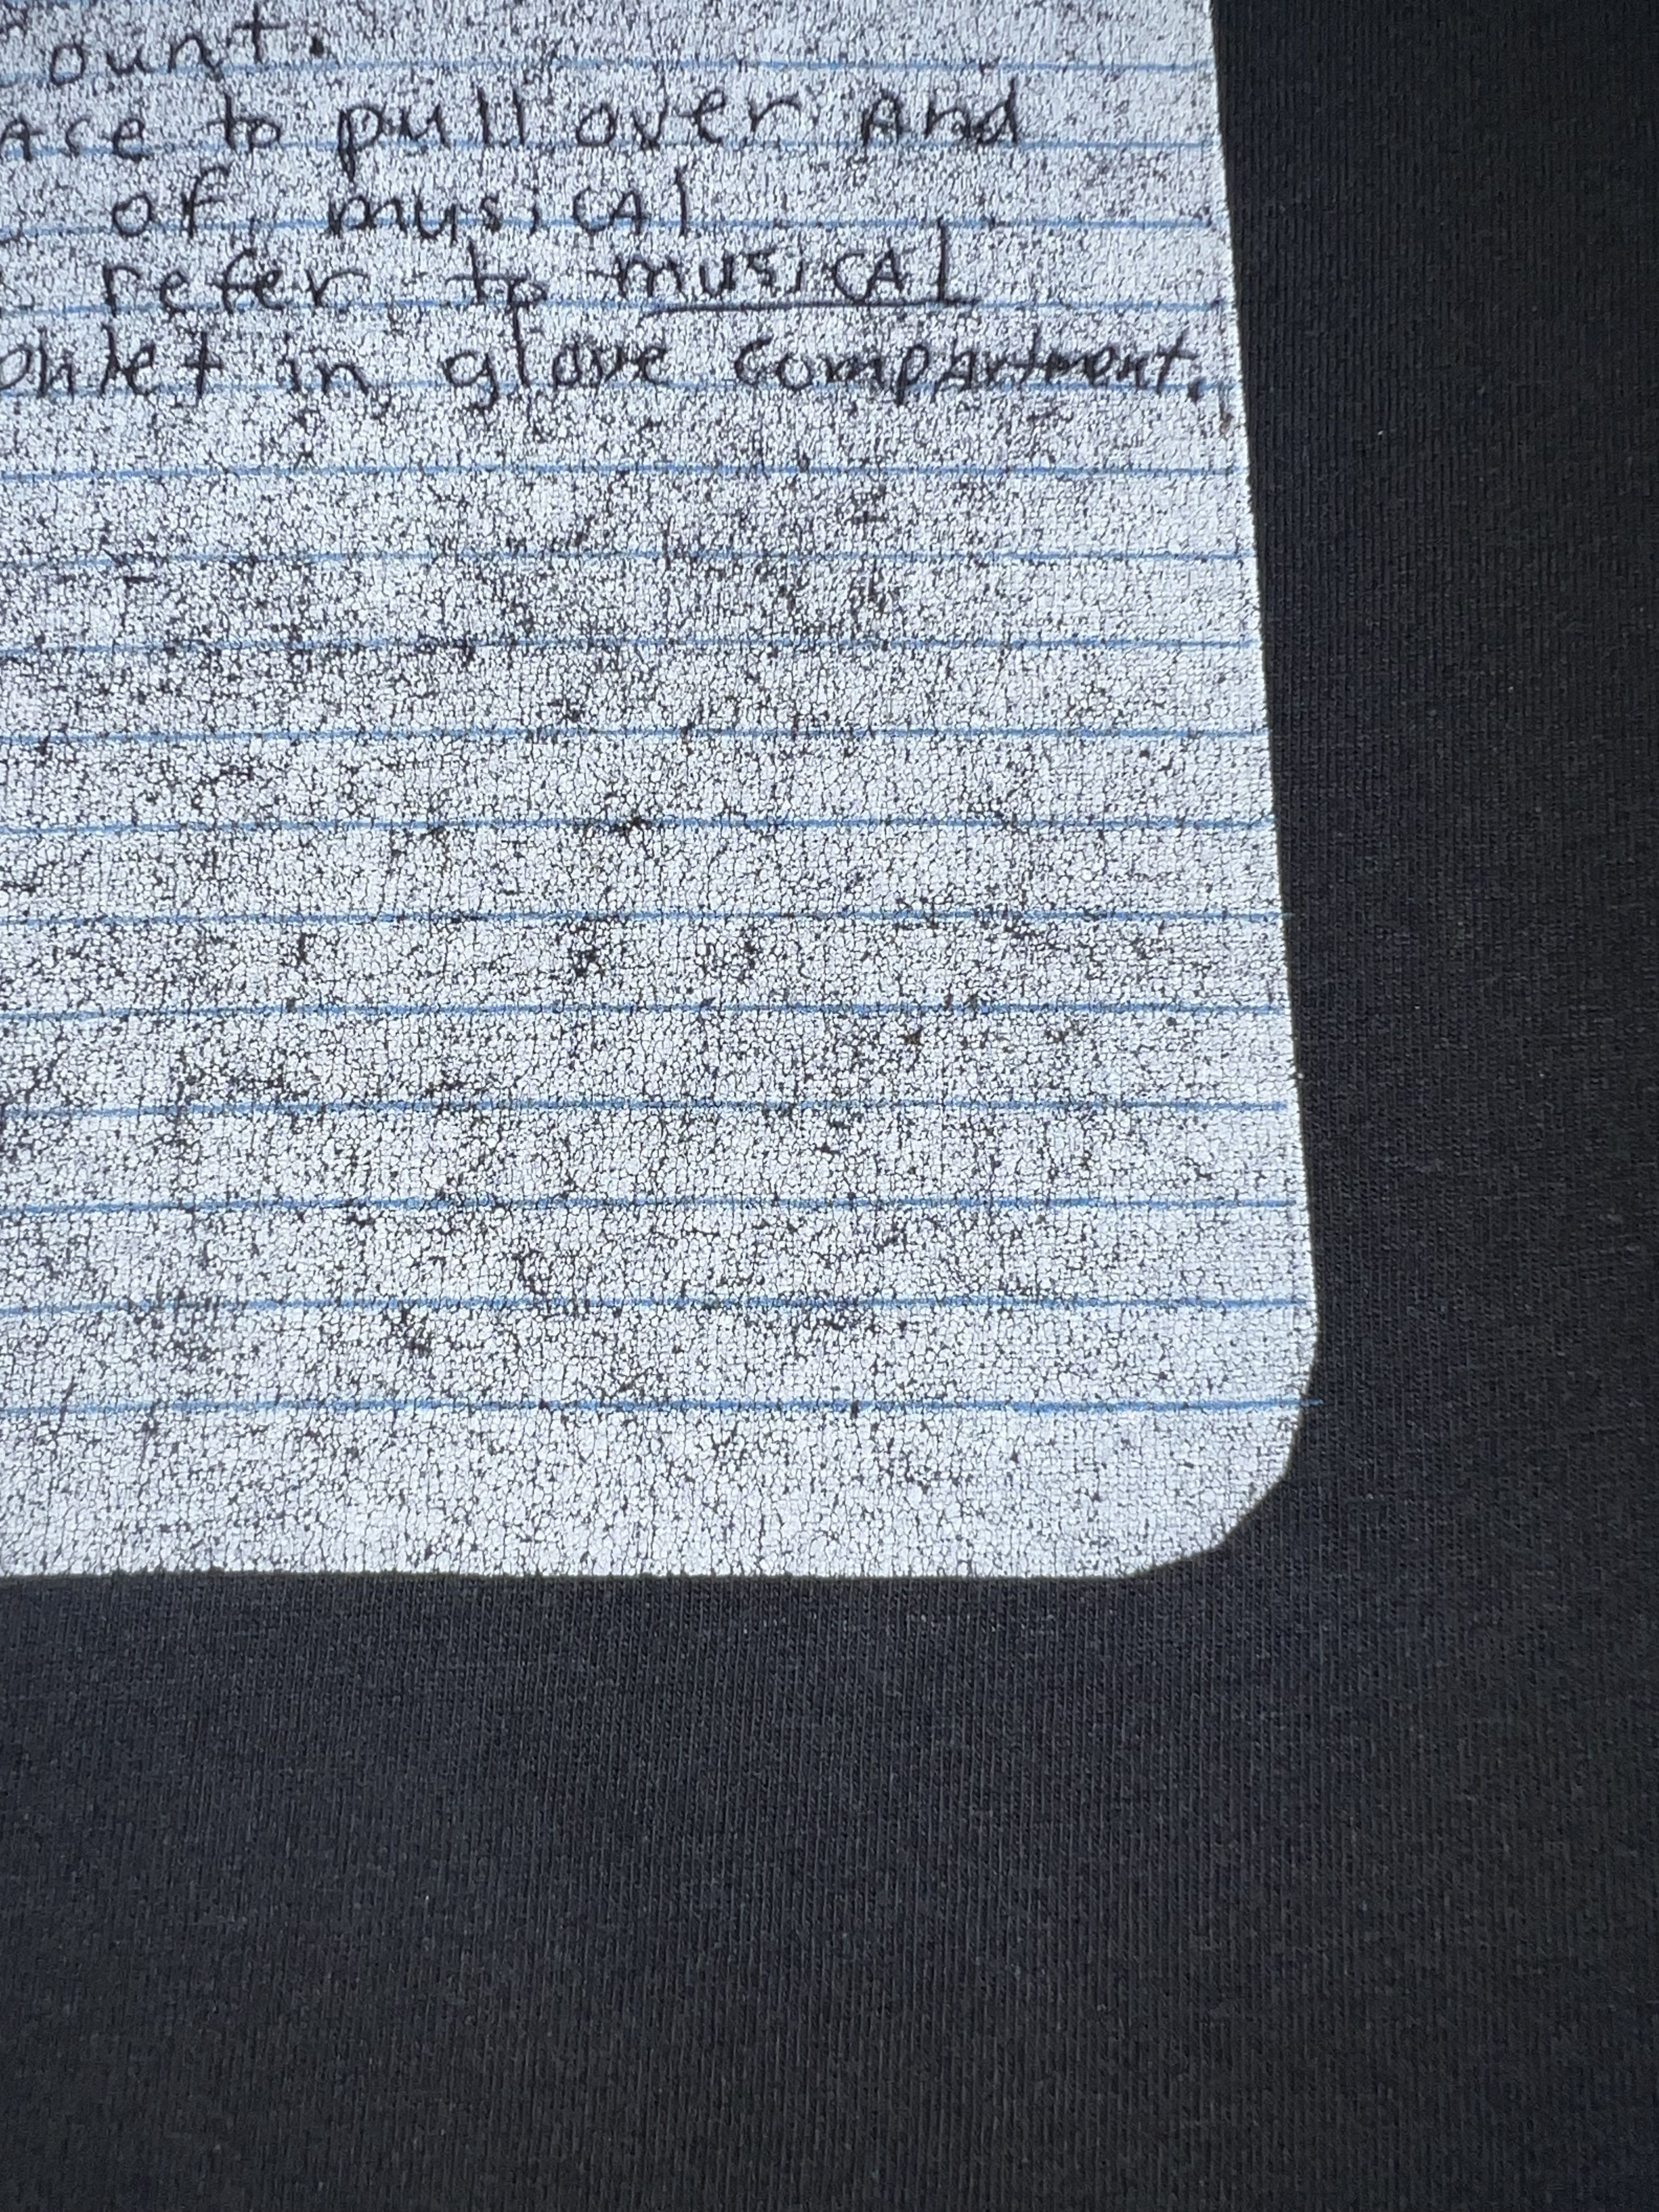 ount.
ace to pull over And
of musicAl
refer to musicAl
phlet in glove compArtment.